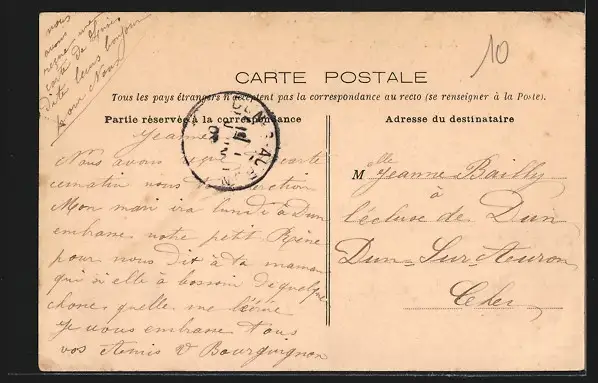 nous
avons
reçue une
carte de
dite leurs bonjour
pour Nous
10
CARTE POSTALE
Tous les pays étrangers n'acceptent pas la correspondance au recto (se renseigner à la Poste).
Partie réservée à la correspondance
Adresse du destinataire
Jeanne
Nous avons carte
cematin vous
Mon mari ira lundi à Dun
embrasse votre petit Réné
pour nous Dit à ta maman
qui si elle à besoin de quelque
chose quelle me
Je vous embrasse Tous
vos Amis V Bourguignon
Mlle Jeanne Bailly
à
l'écluse de Dun
Dun-Sur-Auron
Cher